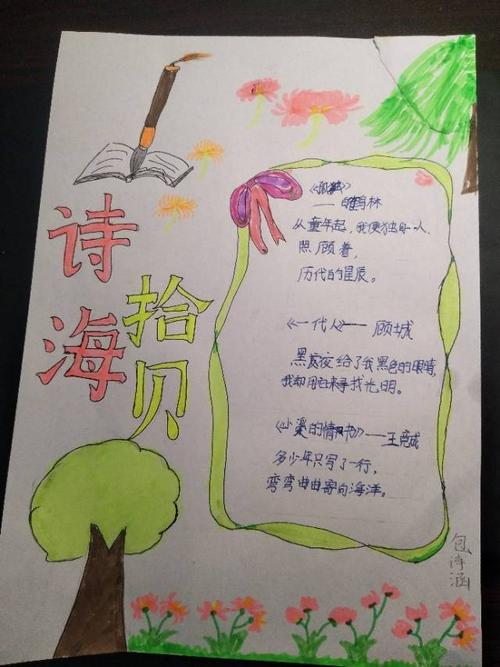 诗海
拾贝
《孤独》
——白鹤林
从童年起,我便独自一人
照顾着,
历代的星辰。
《一代人》——顾城
黑夜给了我黑色的眼睛,
我却用它来寻找光明。
《小溪的情书》——王竞成
多少年只写了一行,
弯弯曲曲寄向海洋。
包诗涵